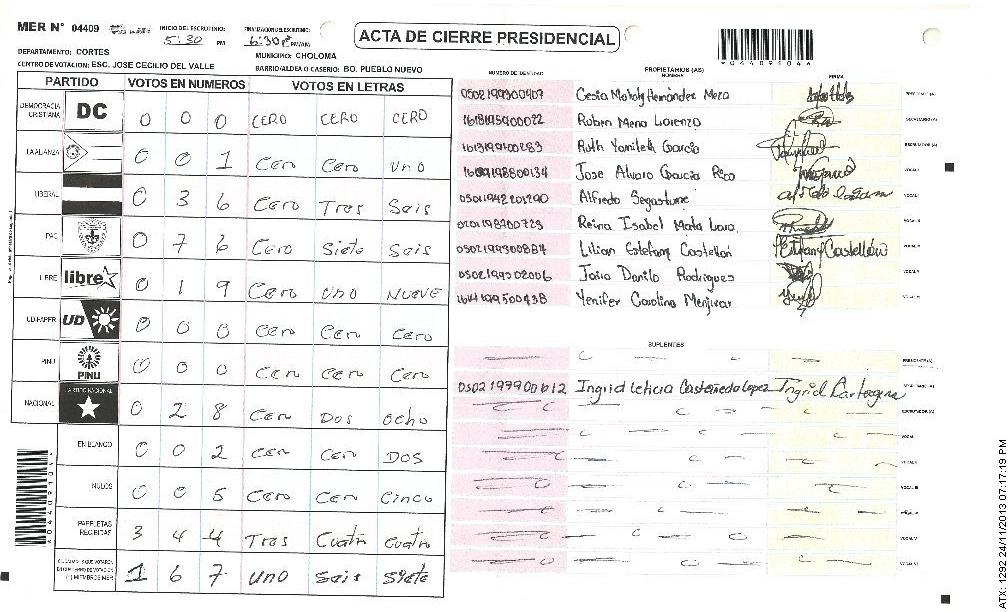 MER N° 04409
INICIO DEL ESCRUTINIO: 5:30 PM
FINALIZACION DEL ESCRUTINIO: 6:30
ACTA DE CIERRE PRESIDENCIAL
044091044
DEPARTAMENTO: CORTES
MUNICIPIO: CHOLOMA
CENTRO DE VOTACION: ESC. JOSE CECILIO DEL VALLE
BARRIO/ALDEA O CASERIO: BO. PUEBLO NUEVO
PARTIDO VOTOS EN NUMEROS VOTOS EN LETRAS
DEMOCRACIA CRISTIANA DC 0 0 0 CERO CERO CERO
LA ALIANZA 0 0 1 Cero Cero Uno
LIBERAL 0 3 6 Cero Tres Seis
PAC 0 7 6 Cero Siete Seis
LIBRE libre 0 1 9 Cero Uno NUEVE
UD-FAPER UD 0 0 0 Cero Cero Cero
PINU PINU 0 0 0 Cero Cero Cero
NACIONAL PARTIDO NACIONAL 0 2 8 Cero Dos ocho
EN BLANCO 0 0 2 Cero Cero DOS
NULOS 0 0 5 Cero Cero Cinco
PAPELETAS RECIBIDAS 3 4 4 Tres Cuatro Cuatro
1 6 7 uno Seis Siete
NUMERO DE IDENTIDAD PROPIETARIOS (AS) NOMBRE FIRMA
0502199300407 Hernández Meza PRESIDENTE (A)
Ruben Mena Lorenzo SECRETARIO (A)
Ruth Yamileth García ESCRUTADOR (A)
Jose Alvaro Garcia Rico VOCAL I
05011942201290 Alfredo Segastume VOCAL II
Reina Isabel Mata Lara
0502199300887 Lilian Estefany Castellón Estfany Castellón
0502199302006 Danilo Rodriguez VOCAL V
1614199500438 Yenifer Carolina Menjivar
SUPLENTES
PRESIDENTE (A)
0502199900612 Ingrid Leticia Castañeda Lopez Ingrid
ESCRUTADOR (A)
VOCAL I
VOCAL II
VOCAL III
VOCAL IV
VOCAL V
VOCAL VI
ATX: 1292 24/11/2013 07:17:19 PM